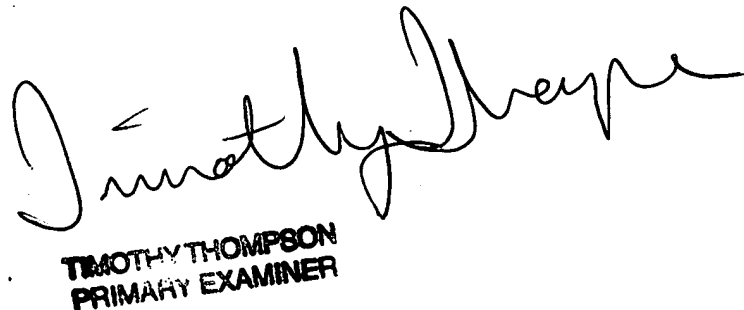 Timothy
TIMOTHY THOMPSON
PRIMARY EXAMINER